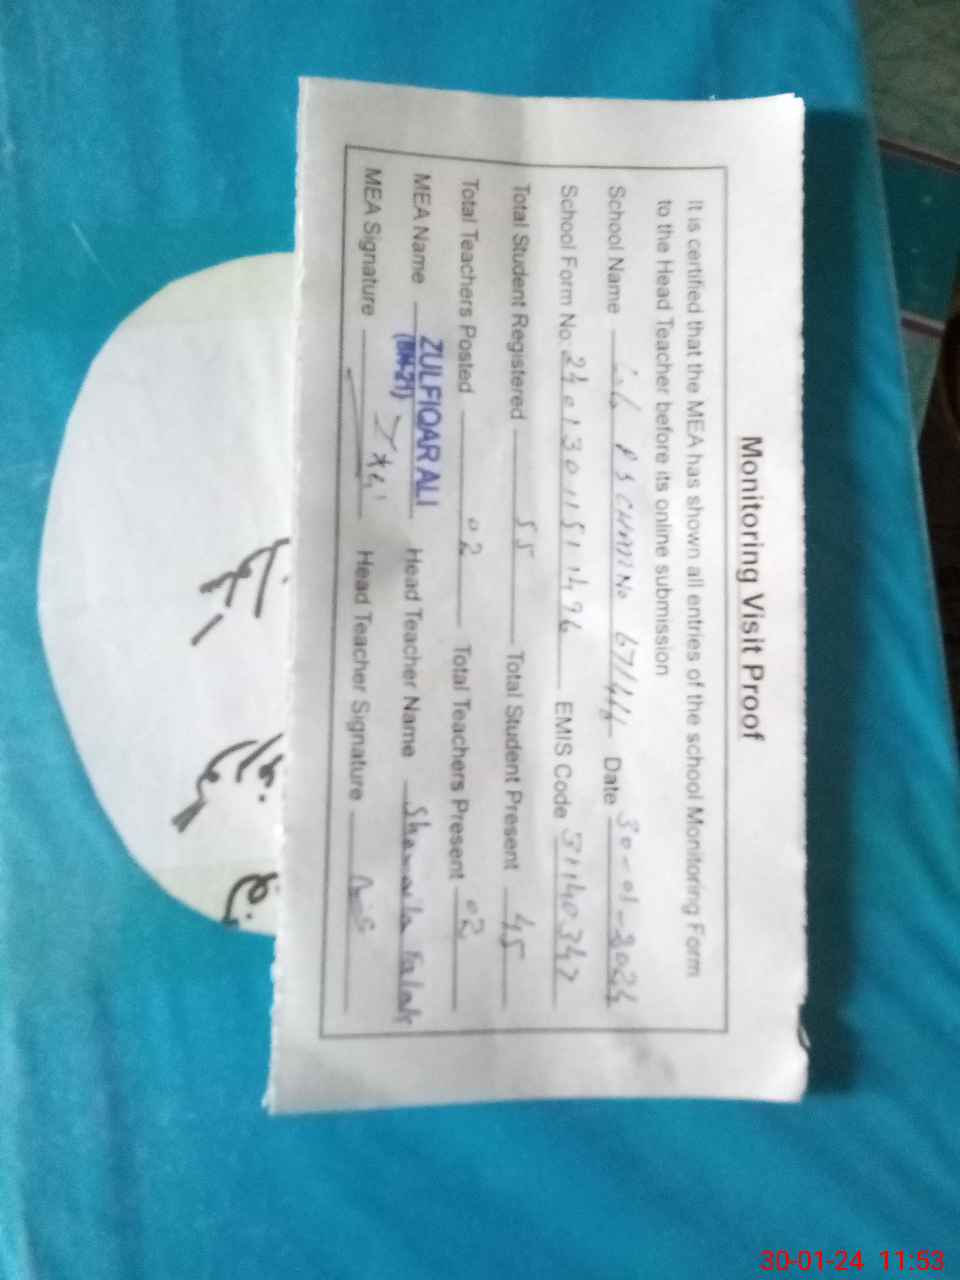 Monitoring Visit Proof
It is certified that the MEA has shown all entries of the school Monitoring Form
to the Head Teacher before its online submission
School Name CHAK No 67/4-R Date 30-01-2024
School Form No. 24013011511496 EMIS Code 31140347
Total Student Registered 55 Total Student Present 45
Total Teachers Posted 02 Total Teachers Present 02
MEA Name ZULFIQAR ALI Head Teacher Name Shemaila Falak
MEA Signature Head Teacher Signature
30-01-24 11:53